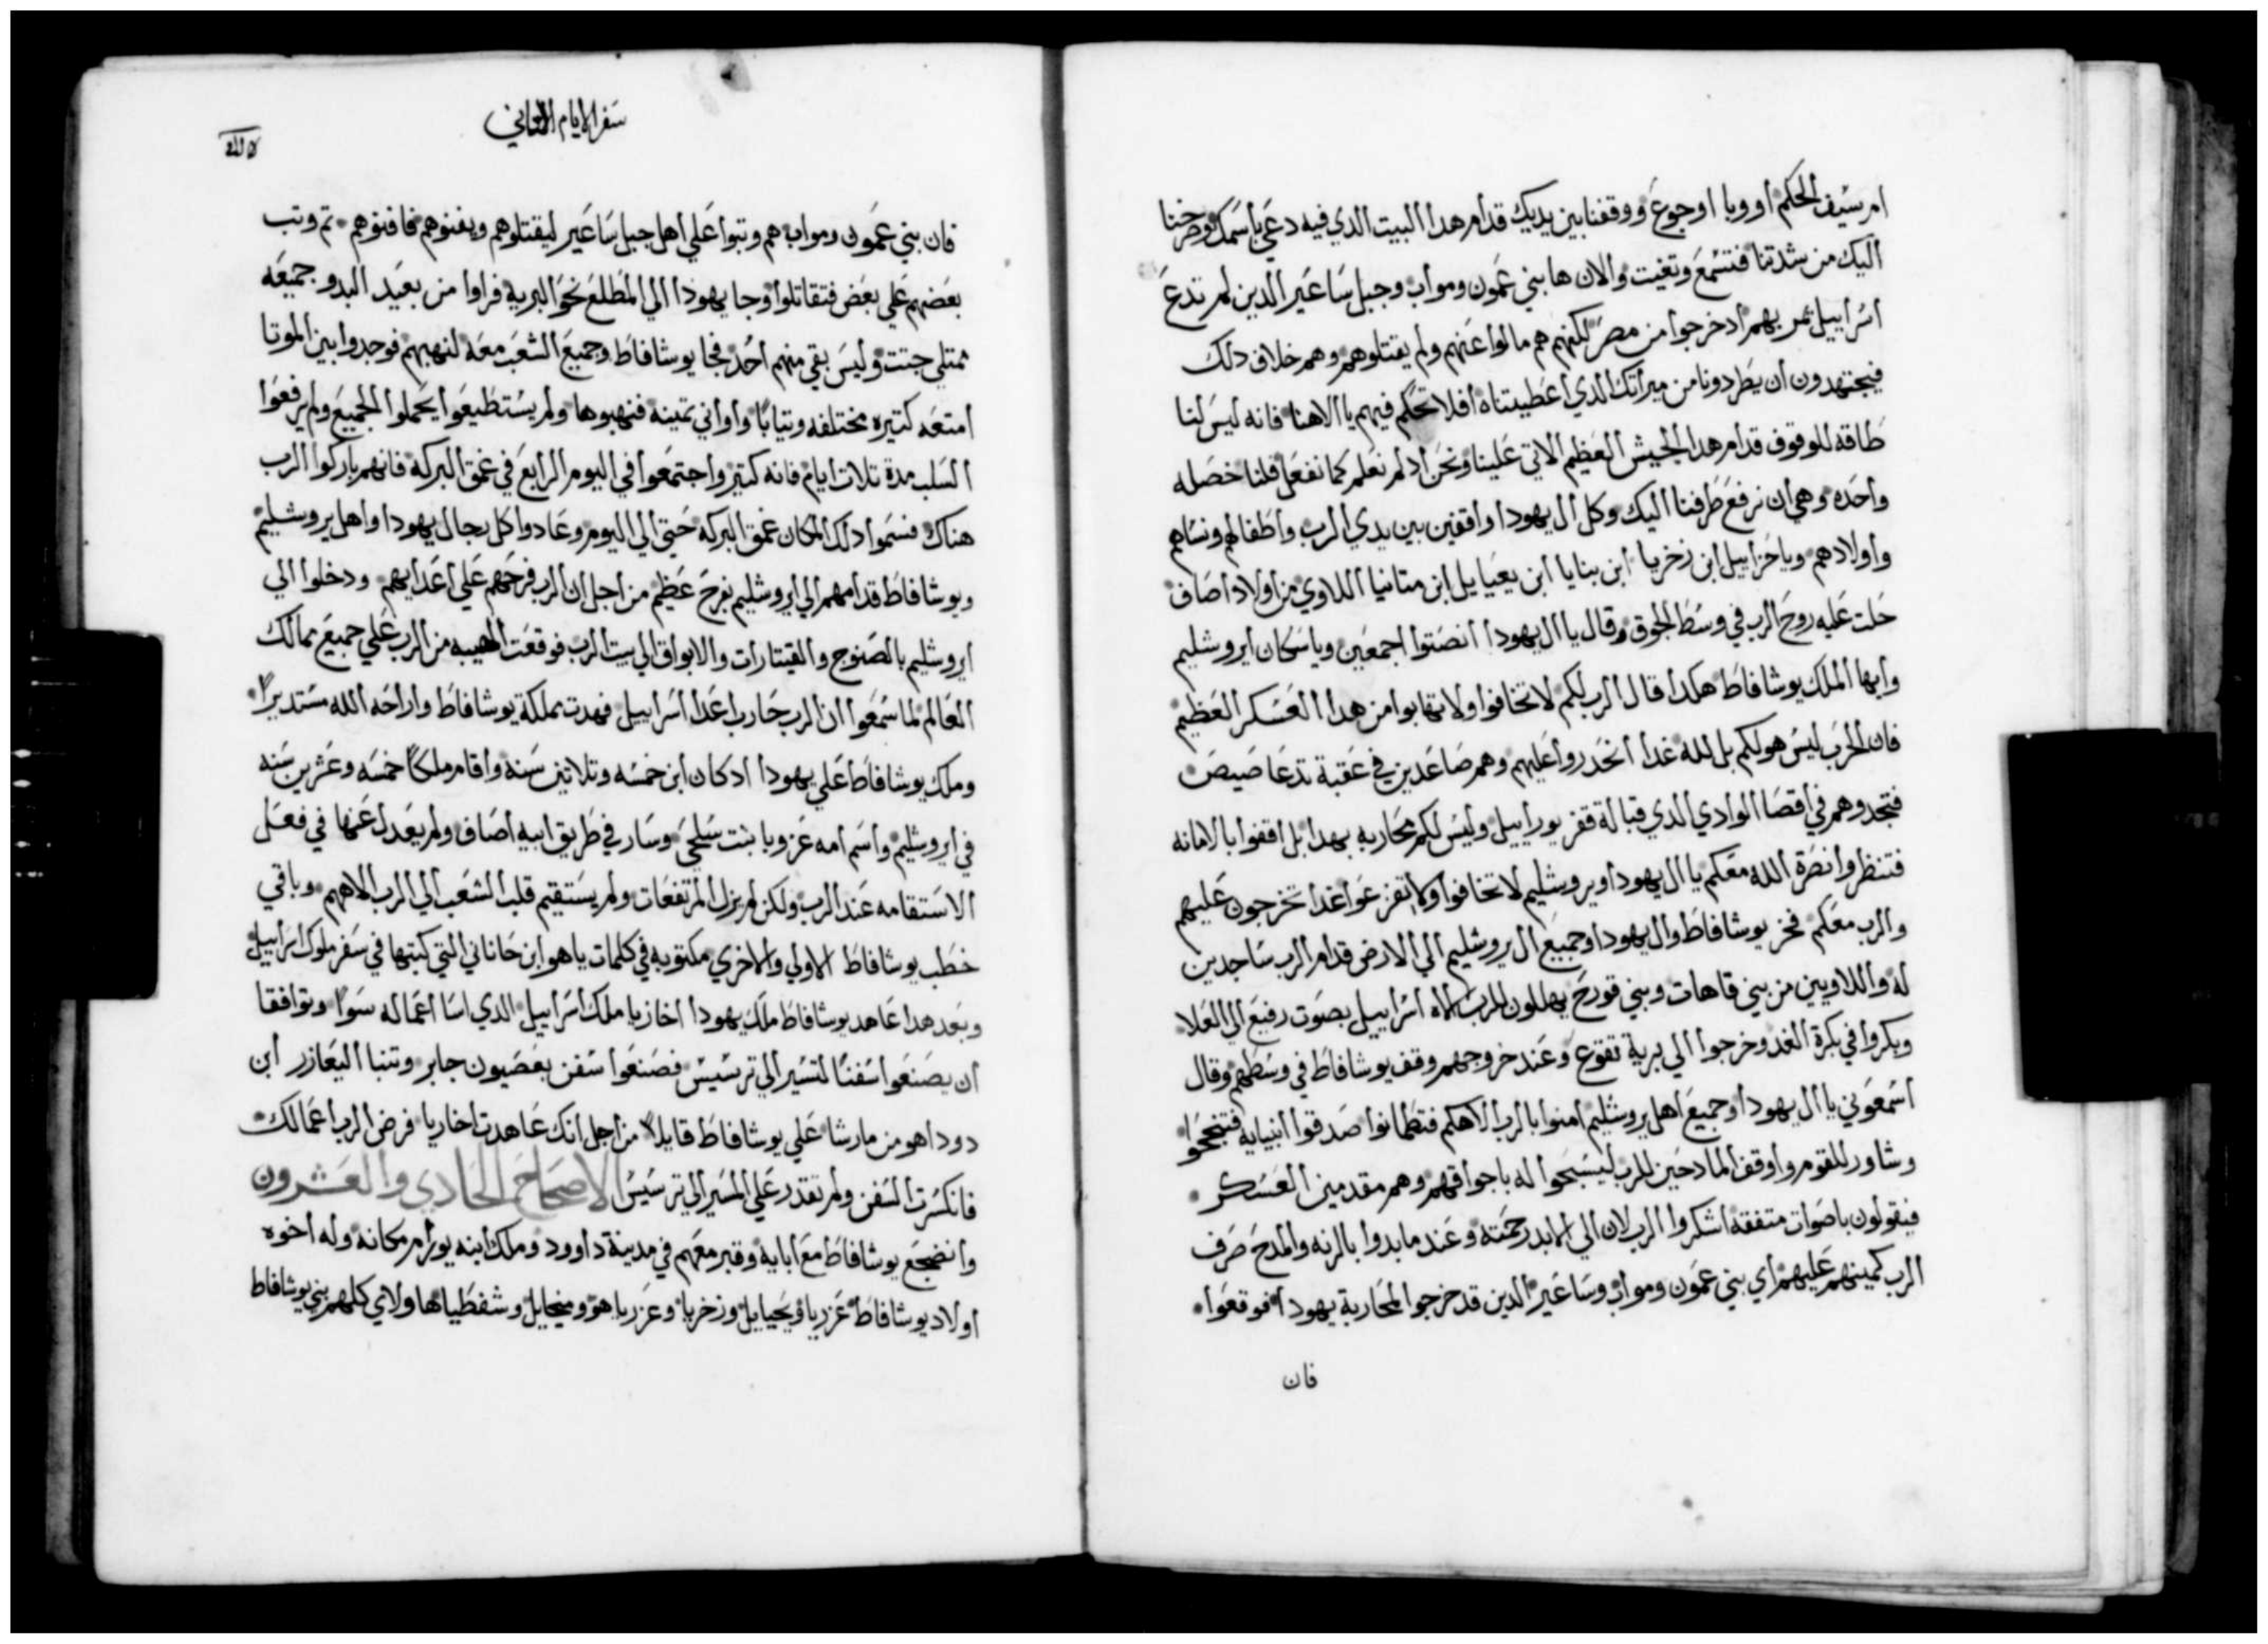 ام سيف الحكم أو وبا او جوع ووقفنا بين يديك قدام هدا البيت الدي فيه دعي باسمك وصرخنا
اليك من شدتنا فتسمع وتغيت والان ها بني عمون ومواب وجبل ساعير الدين لم تدع
اسراييل تمر بهم اد خرجوا من مصر لكنهم هم مالوا عنهم ولم يقتلوهم وهم خلاف دلك
فيجتهدون ان يطردونا من ميراتك الدي اعطيتناه افلا تحكم فيهم يا الاهنا فانه ليس لنا
طاقه للوقوف قدام هدا الجيش العظيم الاتي علينا ونحن اد لم نعلم كما نفعل فلنا خصله
واحده وهي ان نرفع طرفنا اليك وكل ال يهودا واقفين بين يدي الرب واطفالهم ونساهم
واولادهم وياحزاييل ابن زخريا ابن بنايا ابن يعيايل ابن متانيا اللاوي من اولاد اصاف
حلت عليه روح الرب في وسط الجوق وقال يا ال يهودا انصتوا اجمعين ويا سكان ايروشليم
وايها الملك يوشافاط هكدا قال الرب لكم لا تخافوا ولا تهابوا من هدا العسكر العظيم
فان الحرب ليس هو لكم بل لله غدا انحدروا عليهم وهم صاعدين في عقبة تدعا صيص
فتجدوهم في اقصا الوادي الدي قبالة قفر يوراييل وليس لكم محاربه بهدا بل اقفوا بالامانه
فتنظروا نضرة الله معكم يا ال يهودا ويروشليم لا تخافوا ولا تفزعوا غدا تخرجون عليهم
والرب معكم فخر يوشافاط وال يهودا وجميع ال يروشليم الي الارض قدام الرب ساجدين
له واللاويين من بني قاهات وبني قورح يهللون للرب الاه اسراييل بصوت رفيع الي العلا
وبكروا في بكرة الغد وخرجوا الي برية تقوع وعند خروجهم وقف يوشافاط في وسطهم وقال
اسمعوني يا ال يهودا وجميع اهل يروشليم امنوا بالرب الاهكم فتطمانوا صدقوا انبيايه فتنجحوا
وشاور للقوم واوقف المادحين للرب ليسبحوا له باجواقهم وهم مقدمين العسكر
فيقولون باصوات متفقه اشكروا الرب لان الي الابد رحمته وعندما بدوا بالرنه والمدح صرف
الرب كمينهم عليهم اي بني عمون ومواب وساعير الدين قد خرجوا لمحاربة يهودا فوقعوا
فان
سفر الايام الثاني
فان بني عمون ومواب هم وتبوا علي اهل جبل ساعير ليقتلوهم ويفنوهم فافنوهم تم وتب
بعضهم علي بعض فتقاتلوا وجا يهودا الي المطلع نحو البرية فراوا من بعيد البدو جميعه
ممتلي جتت وليس بقي منهم احد فجا يوشافاط وجميع الشعب معه لنهبهم فوجدوا بين الموتا
امتعه كتيره مختلفه وتيابا واواني تمينه فنهبوها ولم يستطيعوا يحملوا الجميع ولم يرفعوا
السلب مدة تلات ايام فانه كتير واجتمعوا في اليوم الرابع في عمق البركة فانهم باركوا الرب
هناك فسموا دلك المكان عمق البركه حتي الي اليوم وعادوا كل رجال يهودا واهل يروشليم
ويوشافاط قدامهم الي ايروشليم بفرح عظيم من اجل ان الرب فرحهم علي اعدايهم ودخلوا الي
ايروشليم بالصنوج والقيتارات والابواق الي بيت الرب فوقعت الهيبه من الرب علي جميع ممالك
العالم لما سمعوا ان الرب حارب اعدا اسراييل فهدت مملكة يوشافاط واراحه الله مستديرا
وملك يوشافاط علي يهودا اد كان ابن خمسه وتلاتين سنه واقام ملكا خمسه وعشرين سنه
في ايروشليم واسم امه عزوبا بنت سلحي وسار في طريق ابيه اصاف ولم يعدل عنها في فعل
الاستقامه عند الرب ولكن لم يزل المرتفعات ولم يستقيم قلب الشعب الي الرب الاههم وباقي
خطب يوشافاط الاولي والاخري مكتوبه في كلمات ياهو ابن حاناني التي كتبها في سفر ملوك اسراييل
وبعد هدا عاهد يوشافاط ملك يهودا اخازيا ملك اسراييل الدي اسا اعماله سوا وتوافقا
ان يصنعوا سفنا لتسير الي ترسيس فصنعوا سفن بعصيون جابر وتنبا اليعازر ابن
دودا هو من مارشا علي يوشافاط قايلا من اجل انك عاهدت اخازيا فرض الرب اعمالك
فانكسرت السفن ولم تقدر علي المسير الي ترسيس الاصحاح الحادي والعشرون
وانضجع يوشافاط مع ابايه وقبر معهم في مدينة داوود وملك ابنه يورام مكانه وله اخوه
اولاد يوشافاط عزريا ويحيايل وزخريا وعزرياهو وميخايل وشفطيا هاولاي كلهم بني يوشافاط